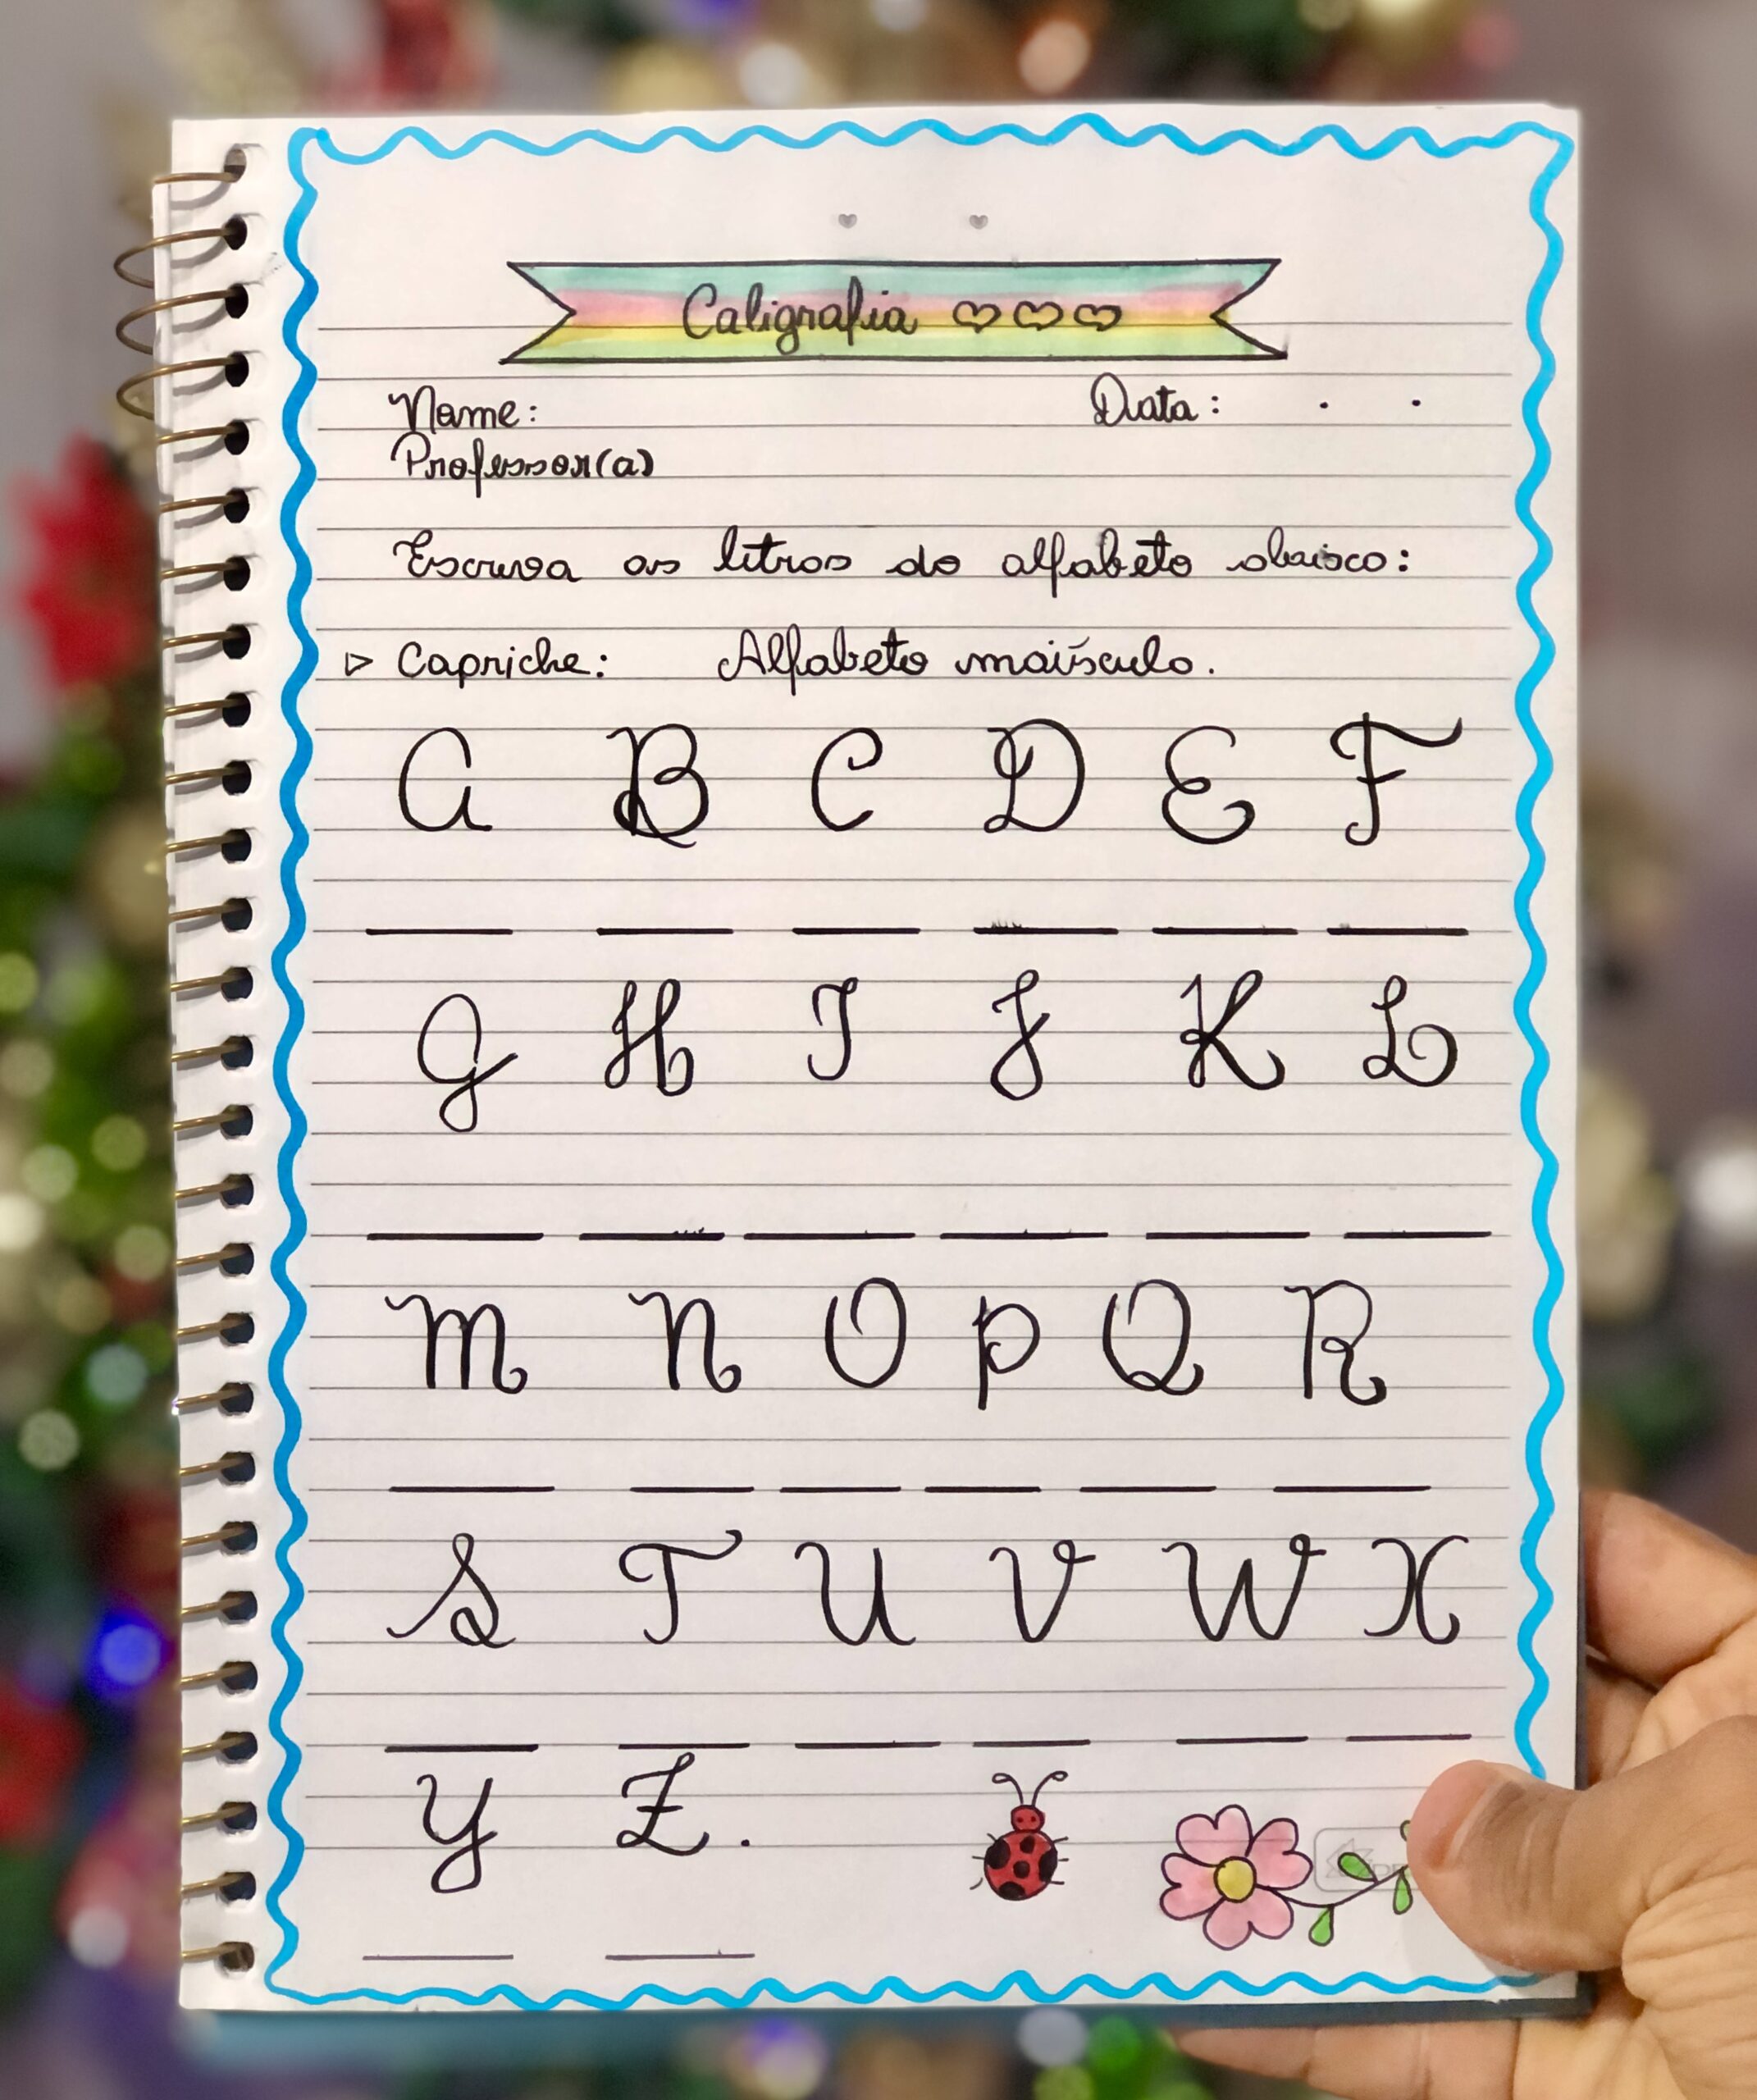 Caligrafia ♡♡♡
Nome: Data: . .
Professor(a)
Escreva as letras do alfabeto abaixo:
▷ Capriche: Alfabeto maiúsculo.
A B C D E F
G H I J K L
M N O P Q R
S T U V W X
Y Z.